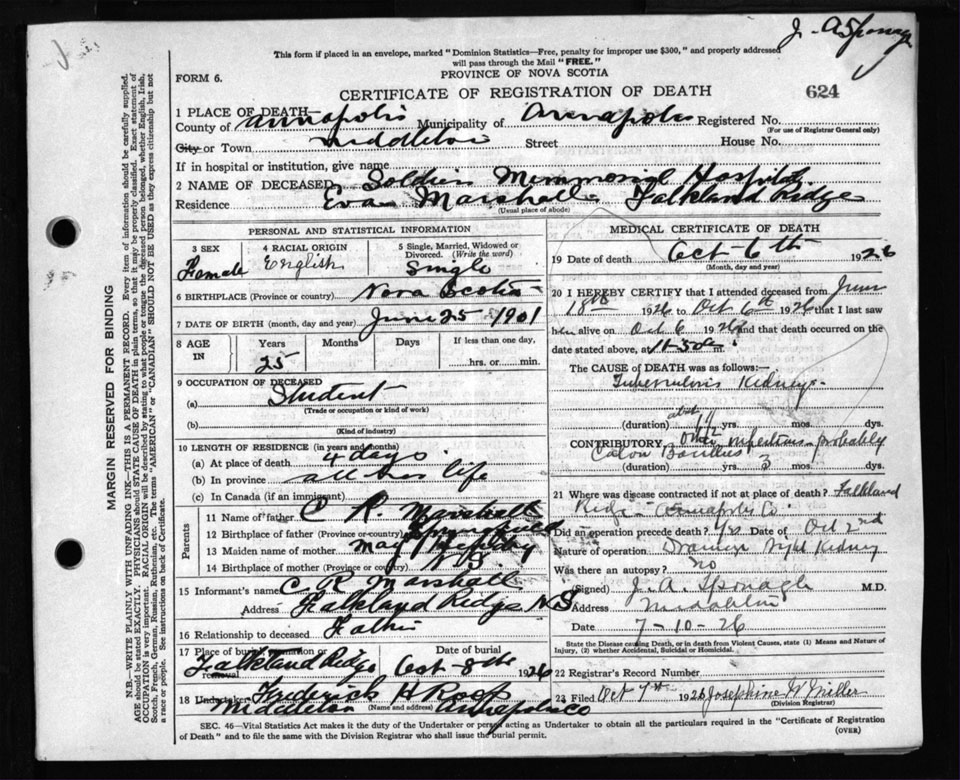 J. A Sponagle
This form if placed in an envelope, marked "Dominion Statistics—Free, penalty for improper use $300," and properly addressed
will pass through the Mail "FREE."
FORM 6.
PROVINCE OF NOVA SCOTIA
CERTIFICATE OF REGISTRATION OF DEATH
624
1 PLACE OF DEATH
County of Annapolis Municipality of Annapolis Registered No.
(For use of Registrar General only)
City or Town Middleton Street House No.
If in hospital or institution, give name
Soldiers Memmorial Hospital
2 NAME OF DECEASED
Residence Eva Marshall Falkland Ridge
(Usual place of abode)
PERSONAL AND STATISTICAL INFORMATION
3 SEX
Female
4 RACIAL ORIGIN
English
5 Single, Married, Widowed or Divorced. (Write the word)
Single
6 BIRTHPLACE (Province or country) Nova Scotia
7 DATE OF BIRTH (month, day and year) June 25 1901
8 AGE IN
Years Months Days If less than one day,
25 hrs. or min.
9 OCCUPATION OF DECEASED
(a) Student
(Trade or occupation or kind of work)
(b)
(Kind of industry)
10 LENGTH OF RESIDENCE (in years and months)
(a) At place of death 4 days
(b) In province all her life
(c) In Canada (if an immigrant)
Parents
11 Name of father C R Marshall
12 Birthplace of father (Province or country) Springfield
13 Maiden name of mother May
14 Birthplace of mother (Province or country) N S
15 Informant's name C. R Marshall
Address Falkland Ridge N S
16 Relationship to deceased Father
17 Place of burial, cremation or removal Date of burial
Falkland Ridge Oct 8th 1926
18 Undertaker Frederick H Roop
Middleton (Name and address) Annapolis Co
MEDICAL CERTIFICATE OF DEATH
19 Date of death Oct 6th 1926
(Month, day and year)
20 I HEREBY CERTIFY that I attended deceased from June
18th 1926 to Oct 6th 1926 that I last saw
her alive on Oct 6 1926 and that death occurred on the
date stated above, at 11-50 a m.
The CAUSE OF DEATH was as follows:—
Tuberculosis Kidneys
about
(duration) 1 1/2 yrs. mos. dys.
CONTRIBUTORY Other infections - probably
Colon Bacillus
(duration) yrs. 3 mos. dys.
21 Where was disease contracted if not at place of death? Falkland
Ridge - Annapolis Co.
Did an operation precede death? Yes Date of Oct 2nd
Nature of operation Drainage right Kidney
Was there an autopsy? no
(Signed) J. A. Sponagle M.D.
Address Middleton
Date 7-10-26
State the Disease causing Death, or in death from Violent Causes, state (1) Means and Nature of
Injury, (2) whether Accidental, Suicidal or Homicidal.
22 Registrar's Record Number
23 Filed Oct 7th 1926 Josephine W Miller
(Division Registrar)
SEC. 46—Vital Statistics Act makes it the duty of the Undertaker or person acting as Undertaker to obtain all the particulars required in the "Certificate of Registration
of Death" and to file the same with the Division Registrar who shall issue the burial permit.
(OVER)
MARGIN RESERVED FOR BINDING
N.B.—WRITE PLAINLY WITH UNFADING INK—THIS IS A PERMANENT RECORD. Every item of information should be carefully supplied.
AGE should be stated EXACTLY. PHYSICIANS should STATE CAUSE OF DEATH in plain terms, so that it may be properly classified. Exact statement of
OCCUPATION is very important. RACIAL ORIGIN will be described by stating to what people or tongue the deceased person belonged, whether English, Irish,
Scotch, French, German, Russian, Ruthenian, etc. The terms "AMERICAN" or "CANADIAN" SHOULD NOT BE USED as they express citizenship but not
a race or people. See instructions on back of Certificate.